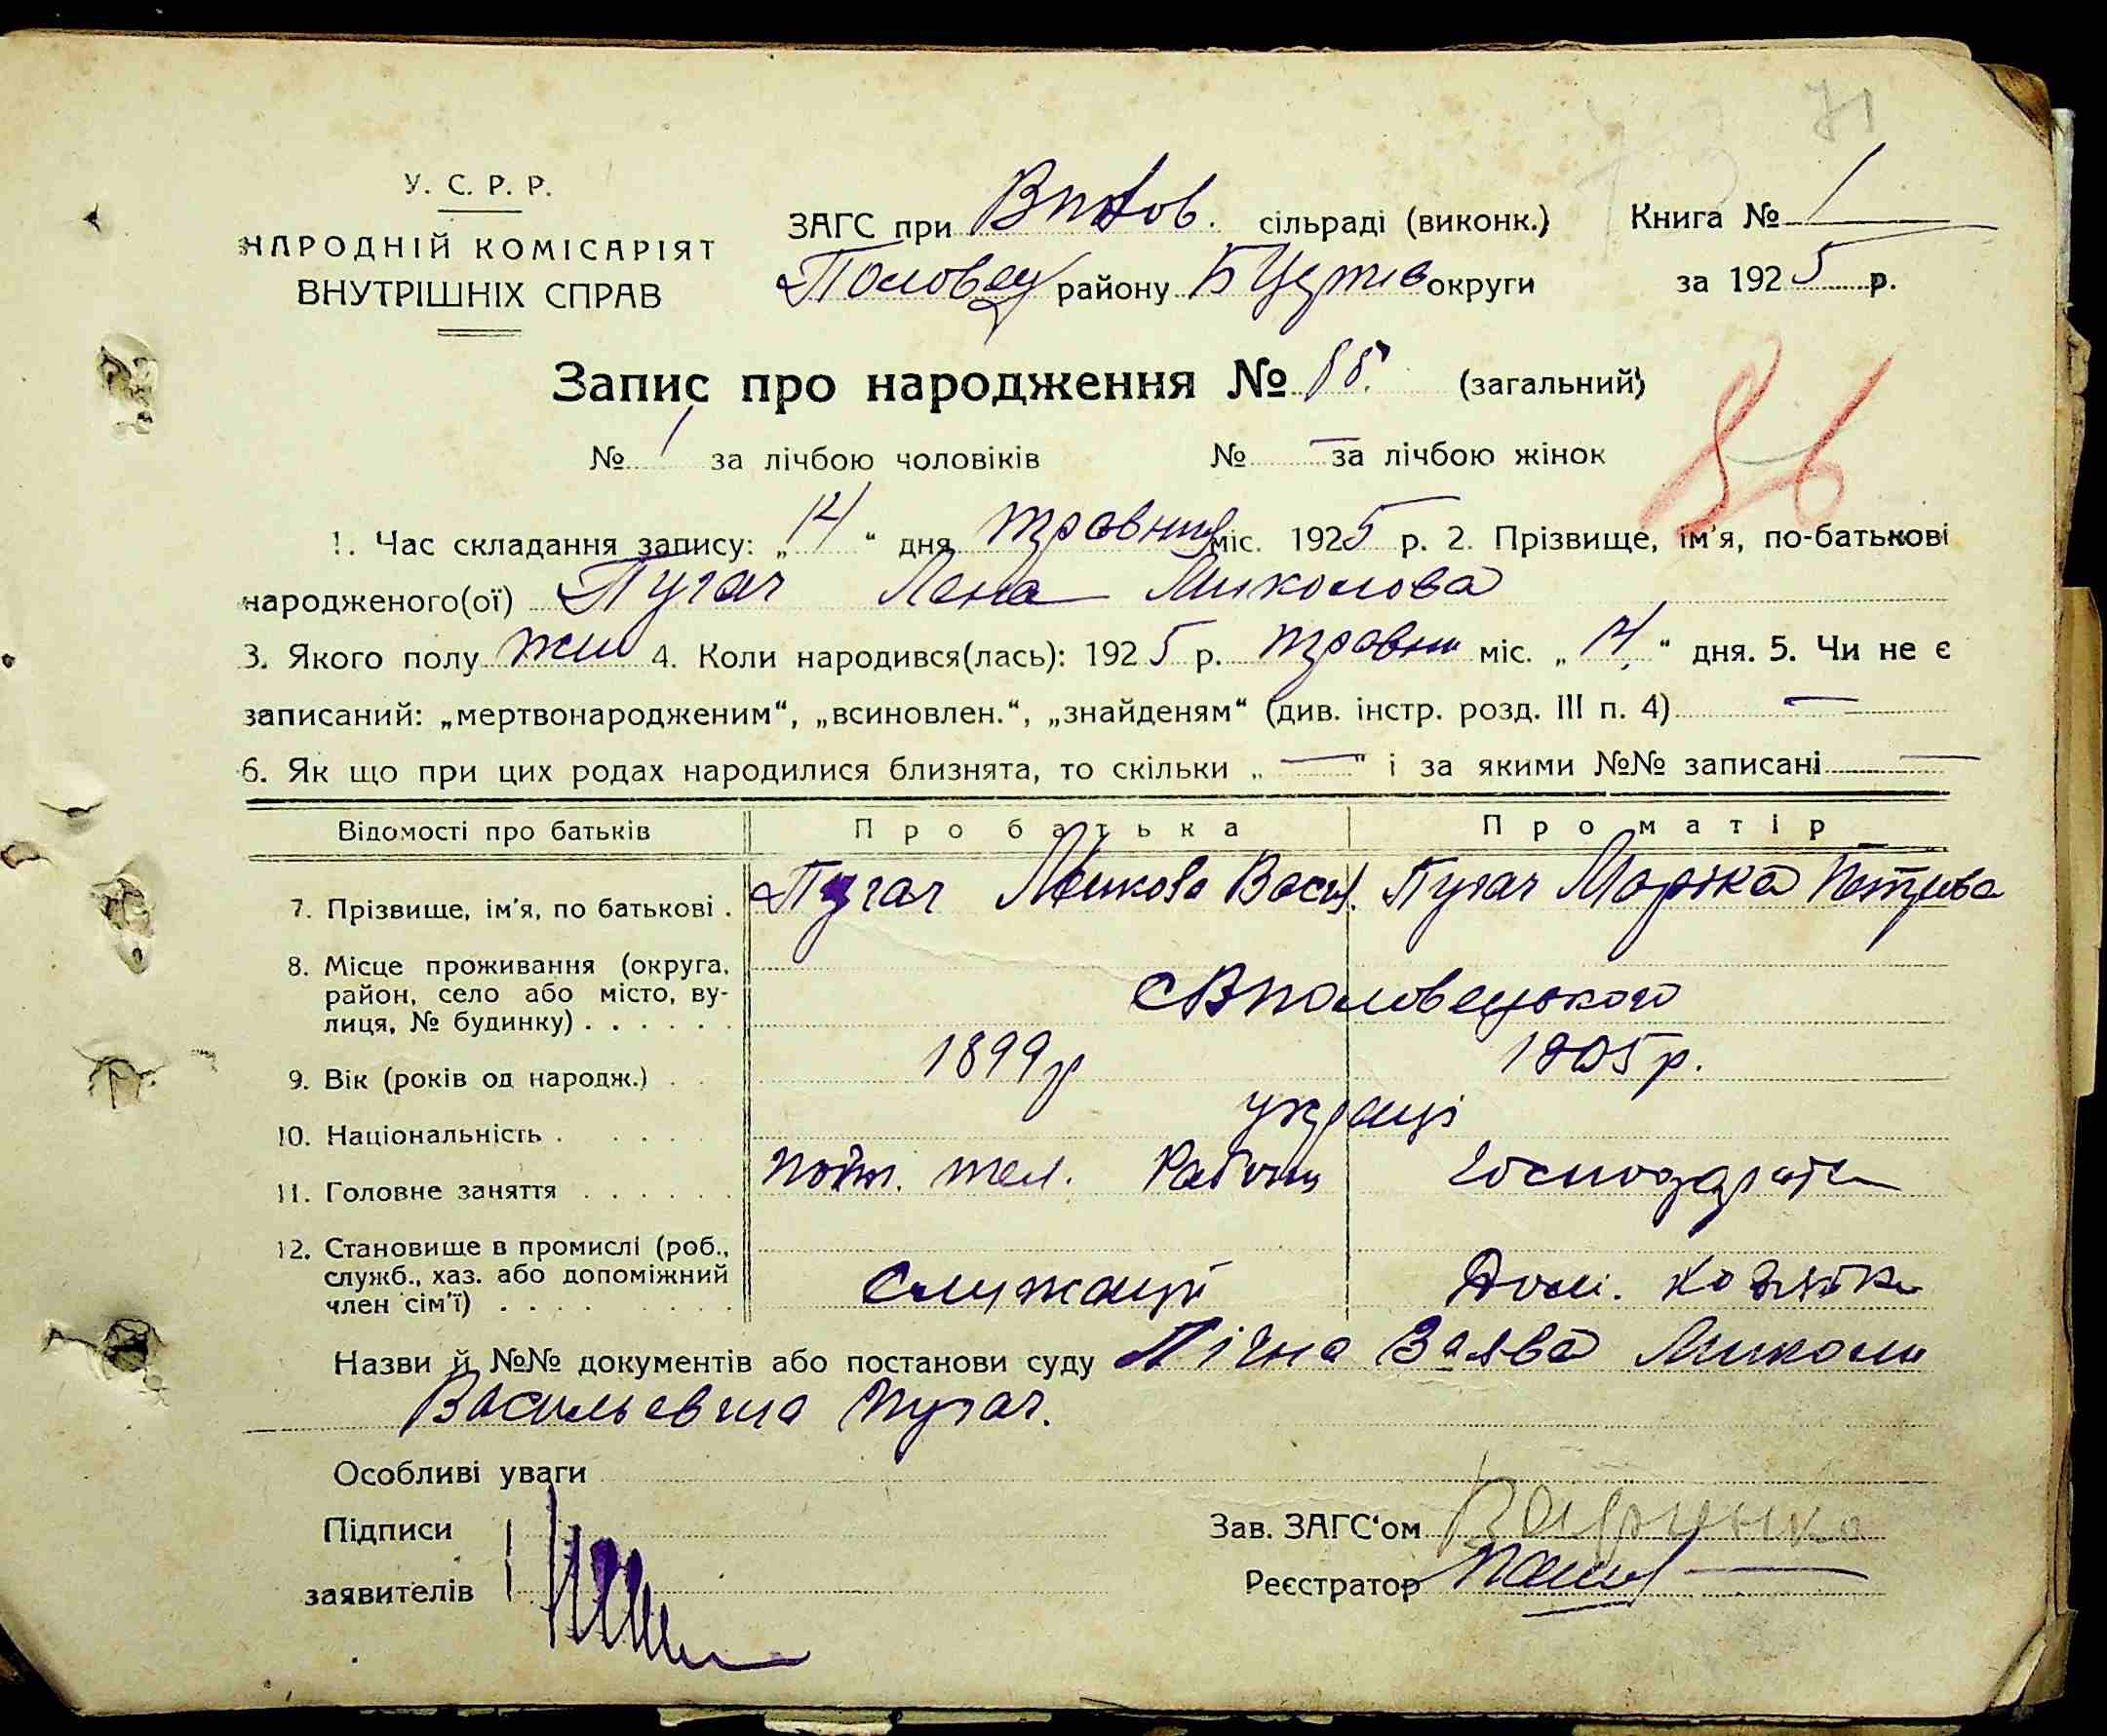 71
У. С. Р. Р.
НАРОДНІЙ КОМІСАРІЯТ
ВНУТРІШНІХ СПРАВ
ЗАГС при сільраді (виконк.) Книга № 1
Половец району БЦерків округи за 1925 р.
Запис про народження № (загальний)
№ 1 за лічбою чоловіків № — за лічбою жінок
1. Час складання запису: „14“ дня травня міс. 1925 р. 2. Прізвище, ім'я, по-батькові
народженого(ої) Пугач Лена Миколова
3. Якого полу жін 4. Коли народився(лась): 1925 р. травня міс. „14“ дня. 5. Чи не є
записаний: „мертвонародженим“, „всиновлен.“, „знайденям“ (див. інстр. розд. III п. 4) —
6. Як що при цих родах народилися близнята, то скільки „—“ і за якими №№ записані —
Відомості про батьків Про батька Про матір
7. Прізвище, ім'я, по батькові . Пугач Микола Васил. Пугач Марійка Петрова
8. Місце проживання (округа, район, село або місто, вулиця, № будинку) . . . . . . с Вполовецького
9. Вік (років од народж.) . . 1899 р 1905 р.
10. Національність . . . . . українці
11. Головне заняття . . . . . . тел. Господарка
12. Становище в промислі (роб., служб., хаз. або допоміжний член сім'ї) . . . . . . . . Служащий Дом. хозяйка
Назви й №№ документів або постанови суду Лічна Заява Миколи
Васильевича Пугач.
Особливі уваги
Підписи
заявителів
Зав. ЗАГС'ом
Реєстратор